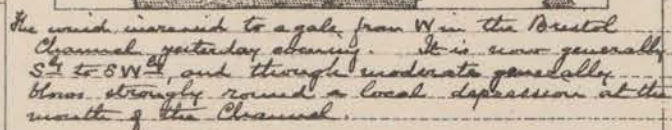 The wind increased to a gale from W in the Bristol
Channel yesterday evening. It is now generally
S.ly to SW.ly, and though moderate generally
blows strongly round a local depression at the
mouth of the Channel.